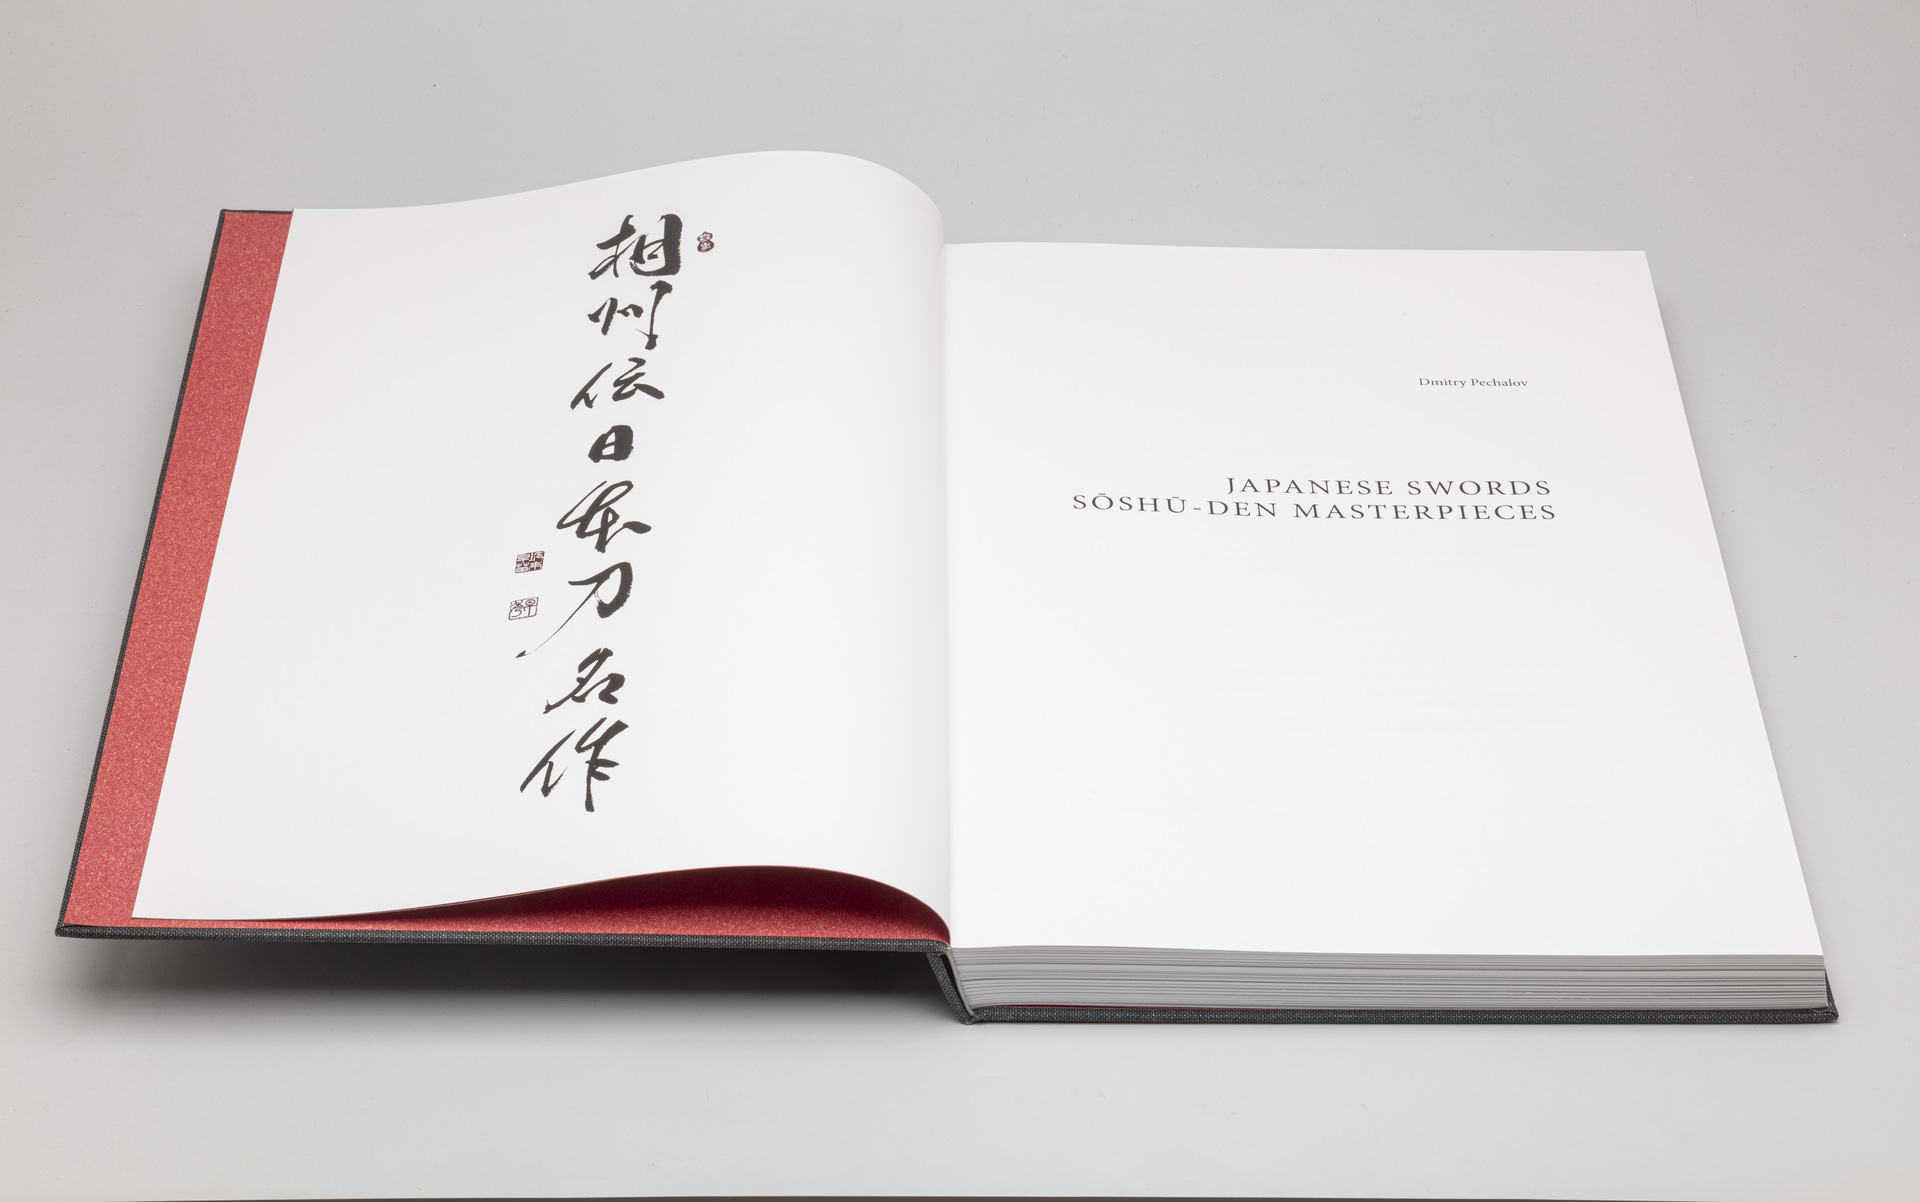 相州伝日本刀名作
Dmitry Pechalov
JAPANESE SWORDS
SŌSHŪ-DEN MASTERPIECES